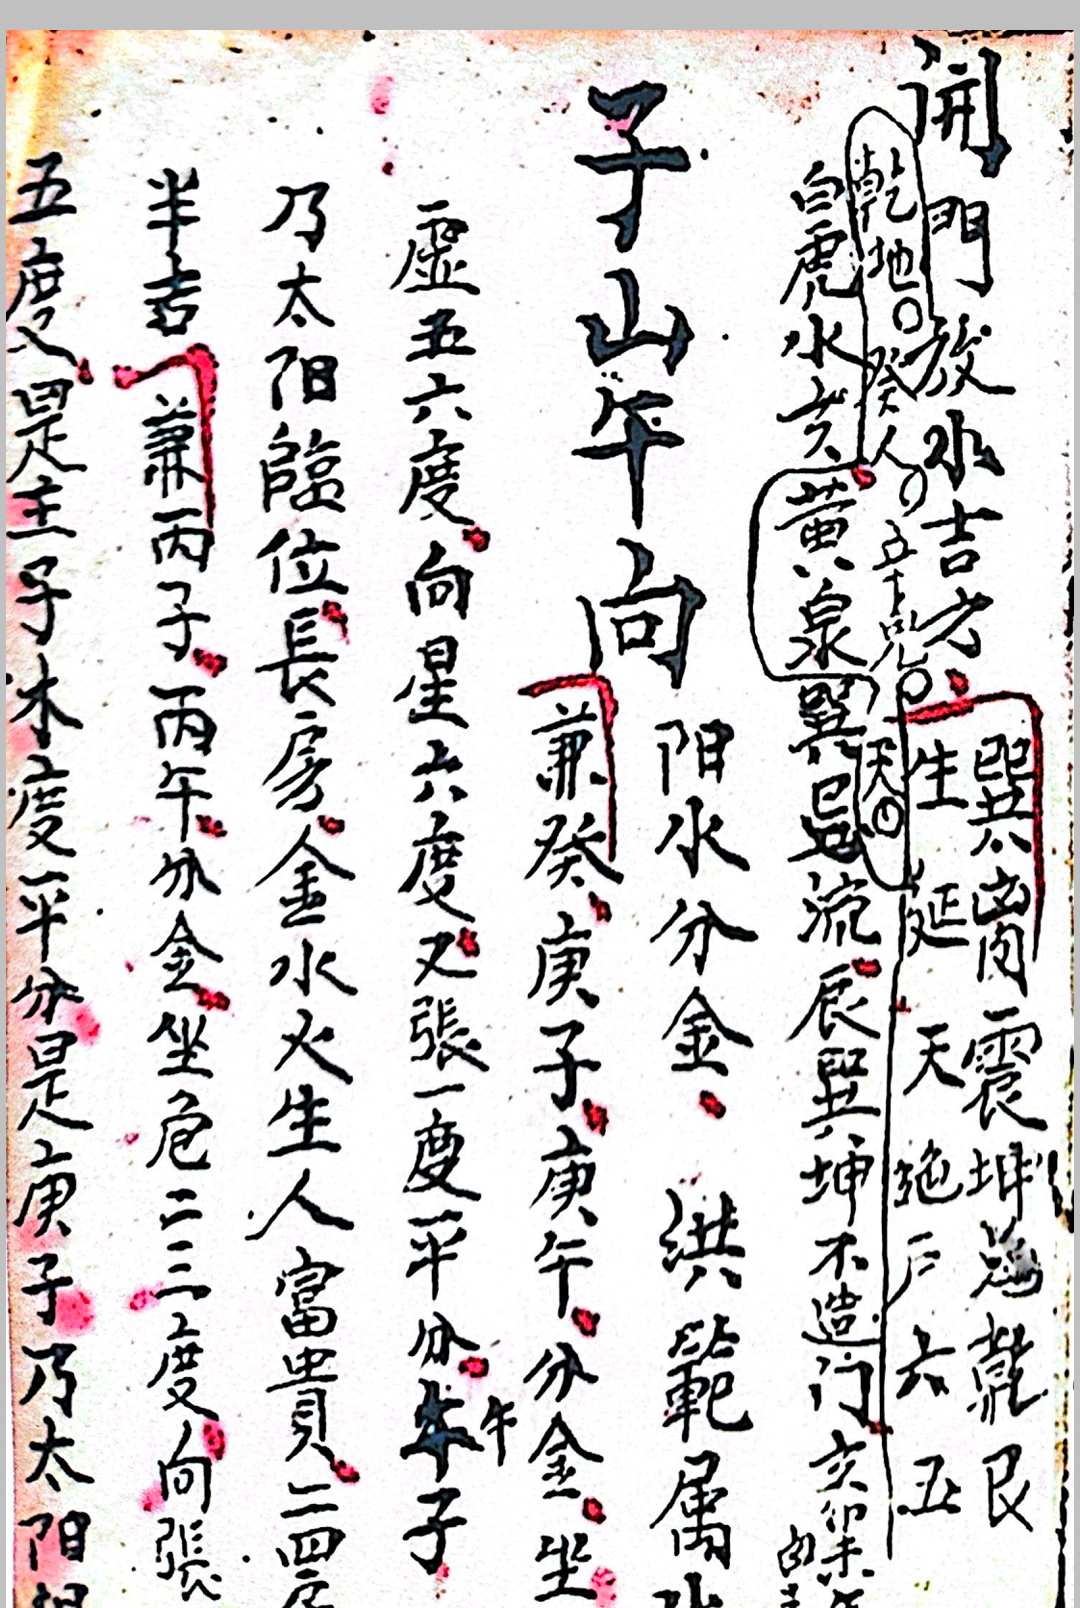 開門放水吉方
巽离震坤兑乾艮
生延天絶戸六五
乾地癸人五十兇天
白虎水亥黃泉巽巳流辰巽坤不造门亥
子山午向
陽水分金洪範属
兼癸庚子庚午分金坐
虛五六度向星六度又張一度平分午子
乃太阳臨位長房金水火生人富貴二四房
半吉兼丙子丙午分金坐危二三度向張
五度又是主子木度平分是庚子乃太阳